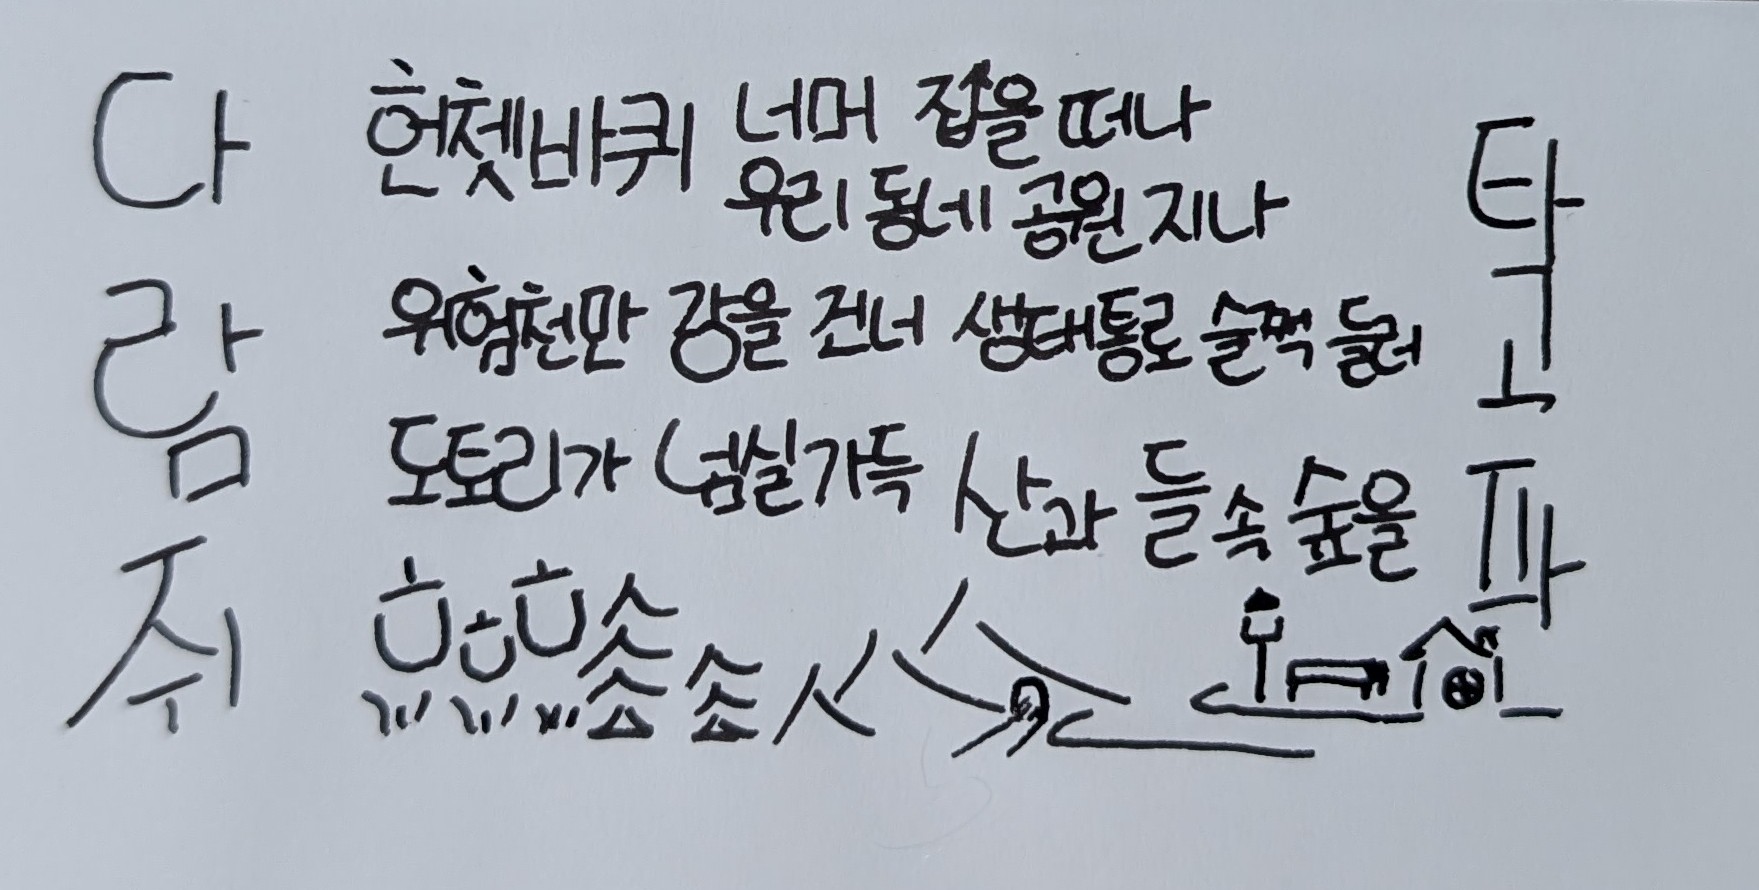 다람쥐
헌쳇바퀴 너머 집을 떠나
우리 동네 공원 지나
위험천만 강을 건너 생태통로 슬쩍 들러
도토리가 넘실가득 산과 들 속 숲을
타고파